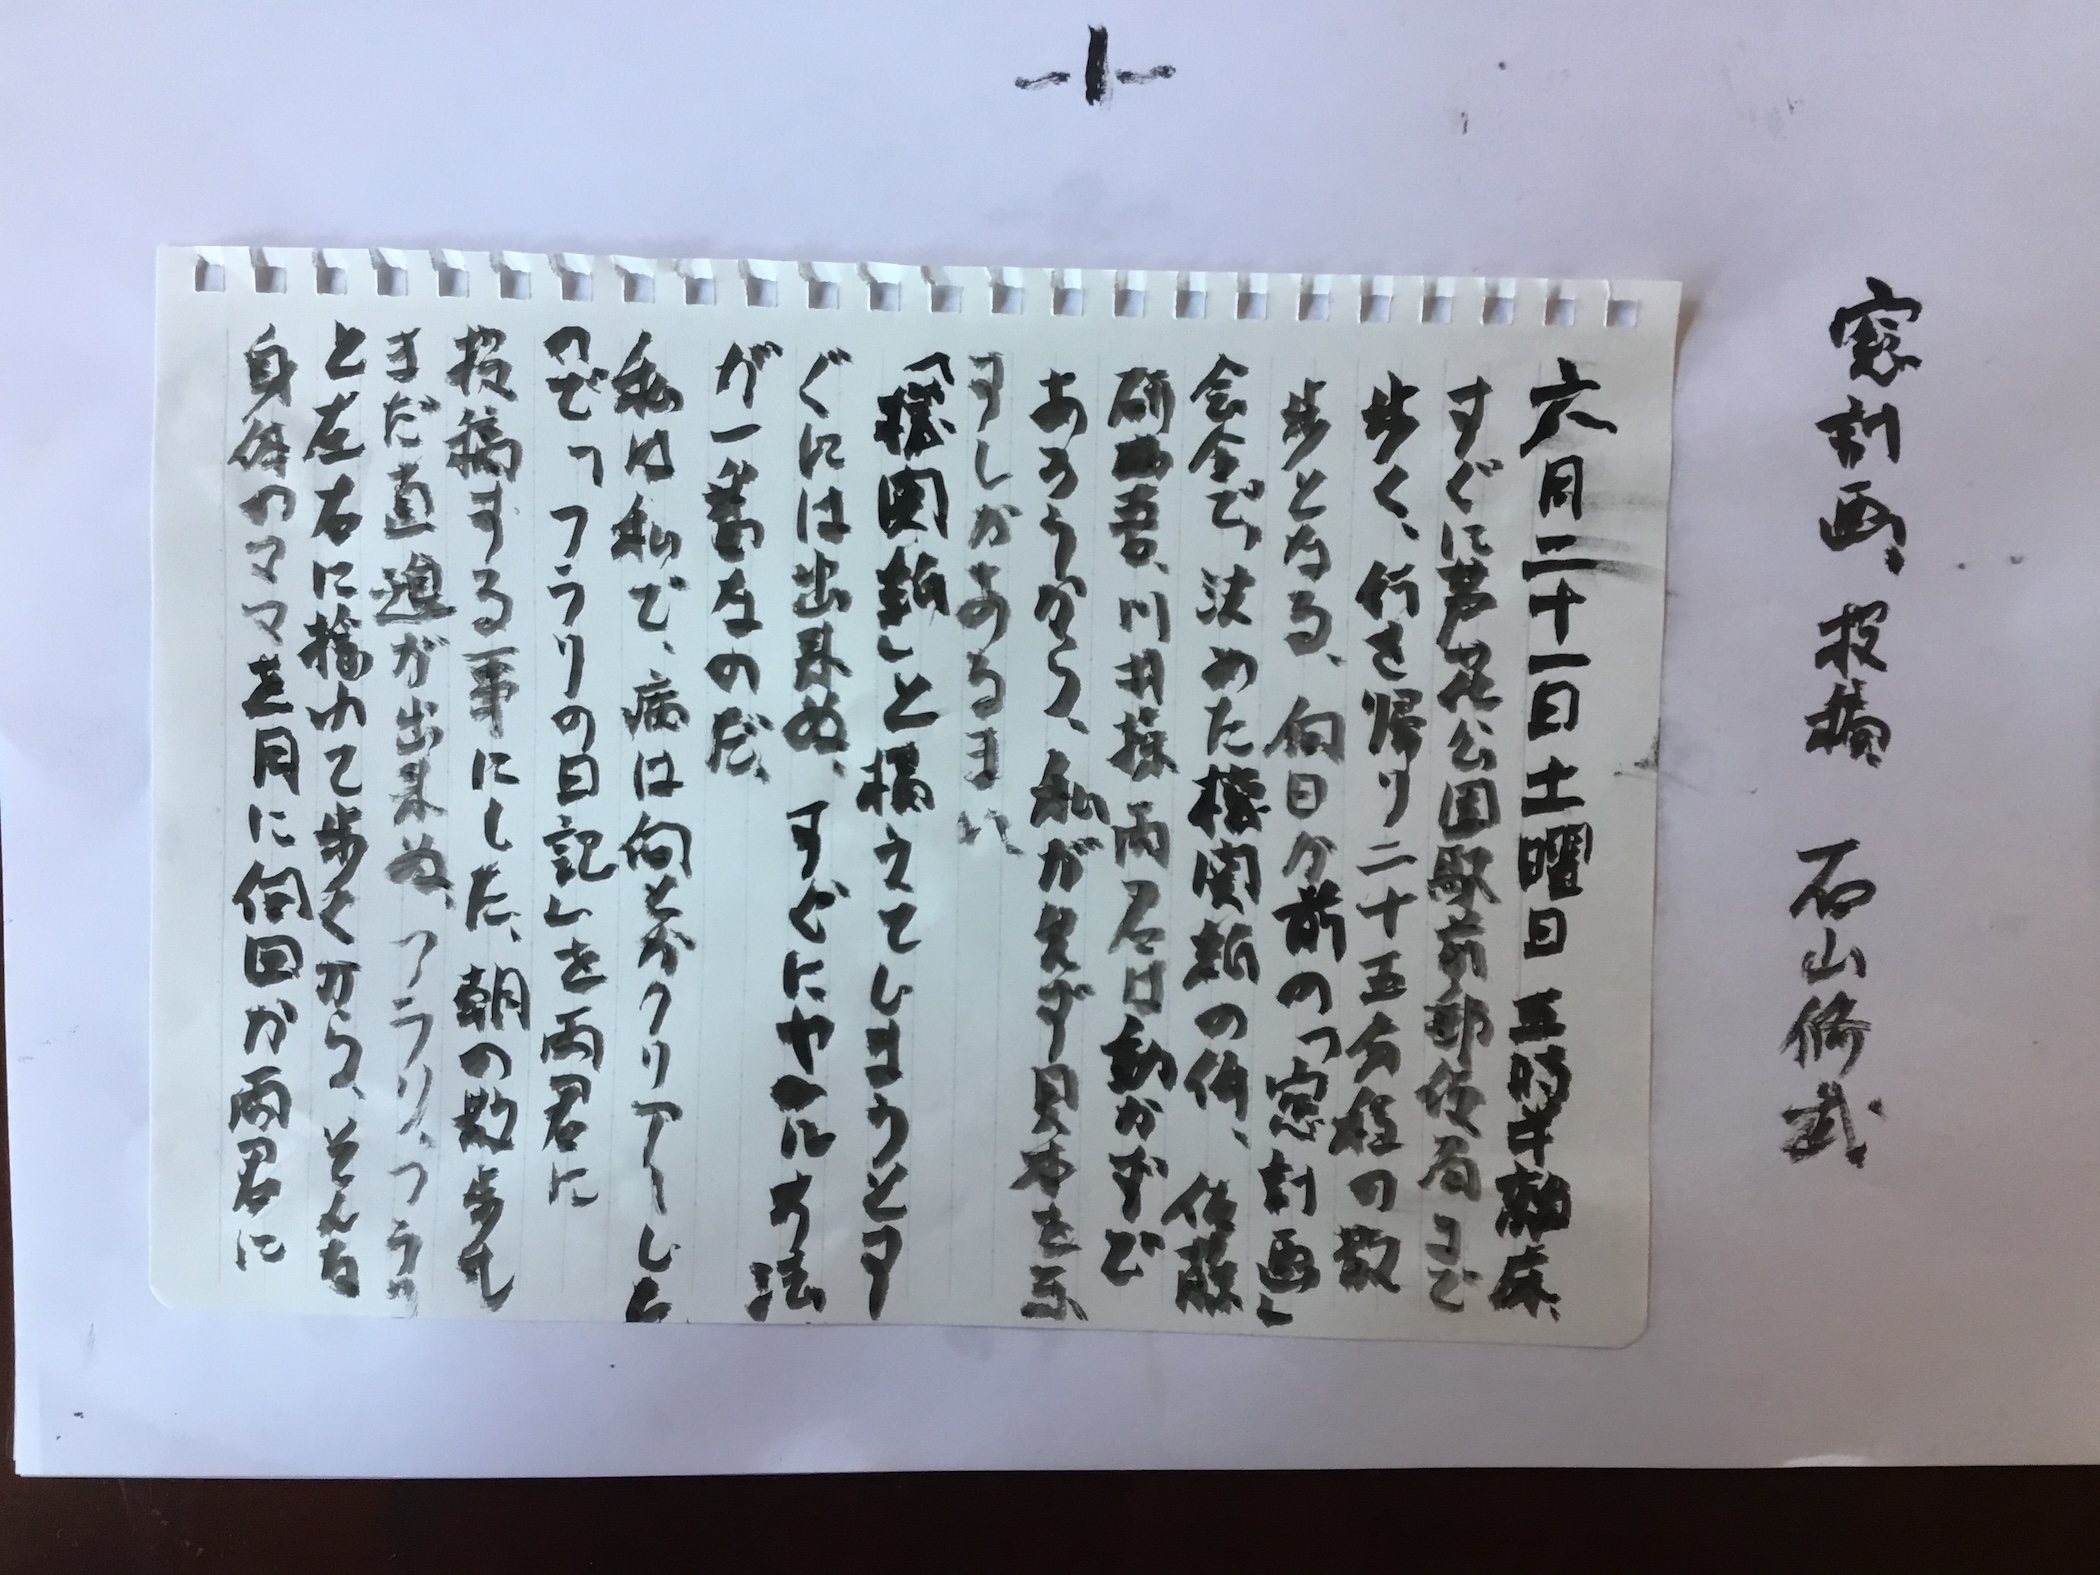 -1-
窓計画、投稿 石山修武
六月二十一日土曜日 三時半離床、
すぐに芦花公園駅前郵便局まで
歩く、行き帰り二十五分程の散
歩となる、何日か前の「窓計画」
会合で、決めた機関紙の件、佐藤
研吾、川井操両君は動かずで
あろうから、私が先ず見本を示
すしかあるまい
「機関紙」と構えてしまうとす
ぐには出来ぬ、すぐにやれる方法
が一番なのだ、
私は私で、病は何とかクリアーした
ので「フラリの日記」を両君に
投稿する事にした、朝の散歩も
まだ直進が出来ぬ、フラリ、フラリ
と左右に揺れて歩くから、そんな
身体のママを月に何回か両君に